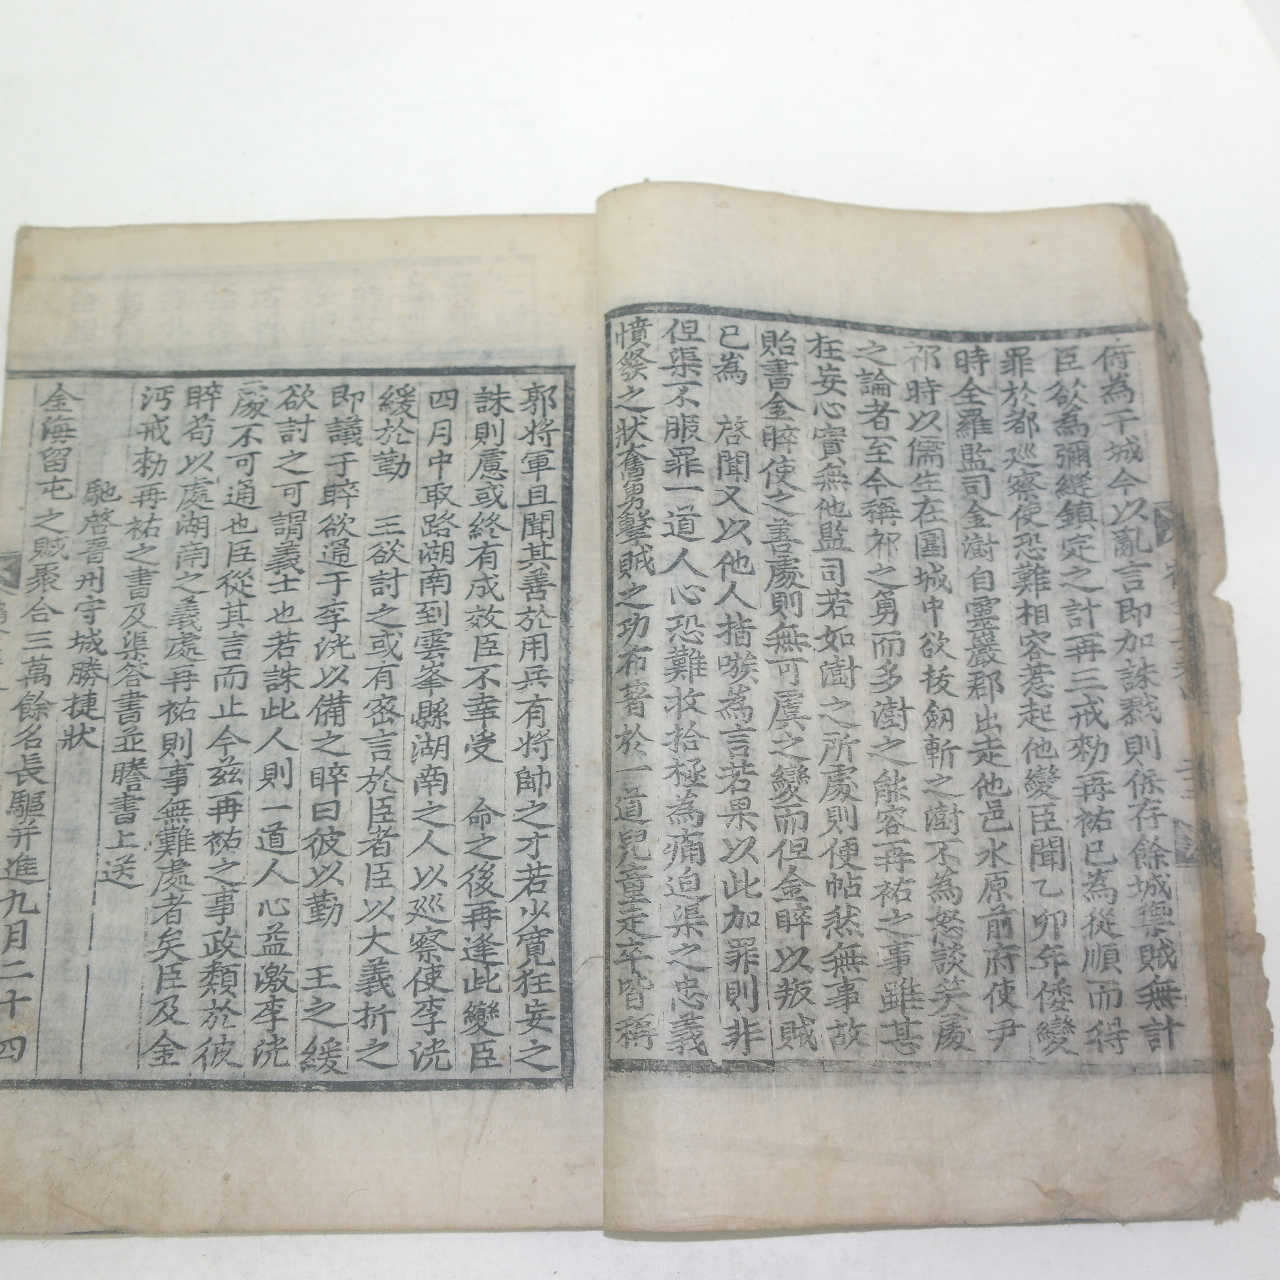 府為干城今以亂言即加誅戮則保存餘城禦賊無計
臣欲為彌縫鎮定之計再三戒勑再祐已為從順而得
罪於都巡察使恐難相容惹起他變臣聞乙卯年倭變
時全羅監司金澍自靈巖郡出走他邑水原前府使尹
祁時以儒生在圍城中欲拔劒斬之澍不為怒談笑處
之論者至今稱祁之勇而多澍之能容再祐之事雖甚
狂妄心實無他監司若如澍之所處則便帖然無事故
貽書金睟使之善處則無可虞之變而但金睟以叛賊
已為 啓聞又以他人指嗾為言若果以此加罪則非
但渠不服罪一道人心恐難收拾極為痛迫渠之忠義
憤發之狀奮勇擊賊之功布著於一道兒童走卒皆稱
郭將軍且聞其善於用兵有將帥之才若少寬狂妄之
誅則慮或終有成效臣不幸受 命之後再逢此變臣
四月中取路湖南到雲峯縣湖南之人以巡察使李洸
緩於勤 王欲討之或有密言於臣者臣以大義折之
即議于睟欲通于李洸以備之睟曰彼以勤 王之緩
欲討之可謂義士也若誅此人則一道人心益激李洸
處不可通也臣從其言而止今玆再祐之事政類於彼
睟苟以處湖南之義處再祐則事無難處者矣臣及金
沔戒勑再祐之書及渠答書並謄書上送
馳啓晉州守城勝捷狀
金海留屯之賊聚合三萬餘名長驅并進九月二十四